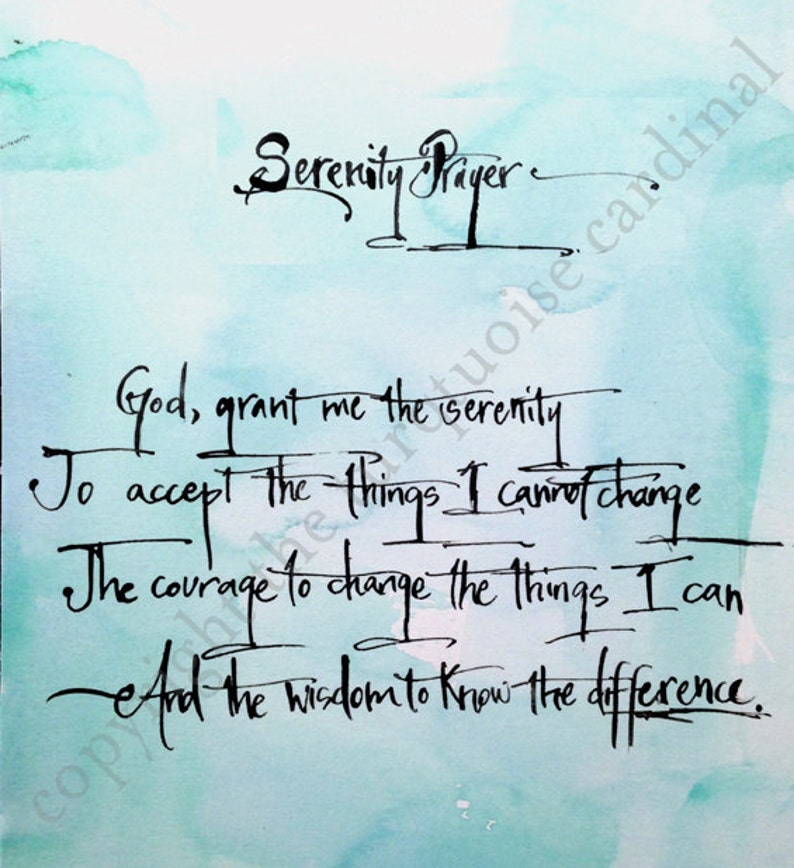 Serenity Prayer
God, grant me the serenity
To accept the things I cannot change
The courage to change the things I can
And the wisdom to know the difference.
copyright the turquoise cardinal